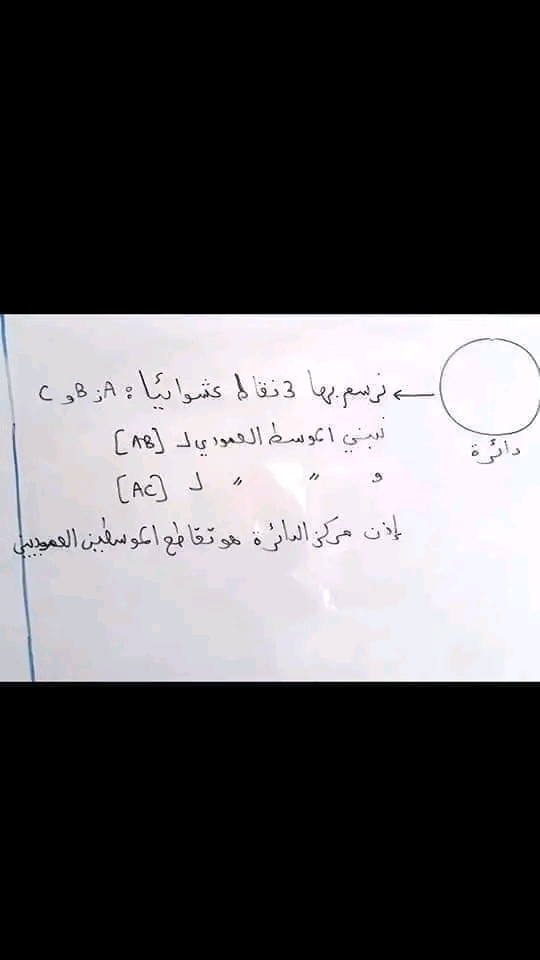 نرسم بها 3 نقاط عشوائيا : A و B و C
نبني الموسط العمودي لـ [AB]
و " " لـ [AC]
إذن مركز الدائرة هو تقاطع الموسطين العموديين
دائرة